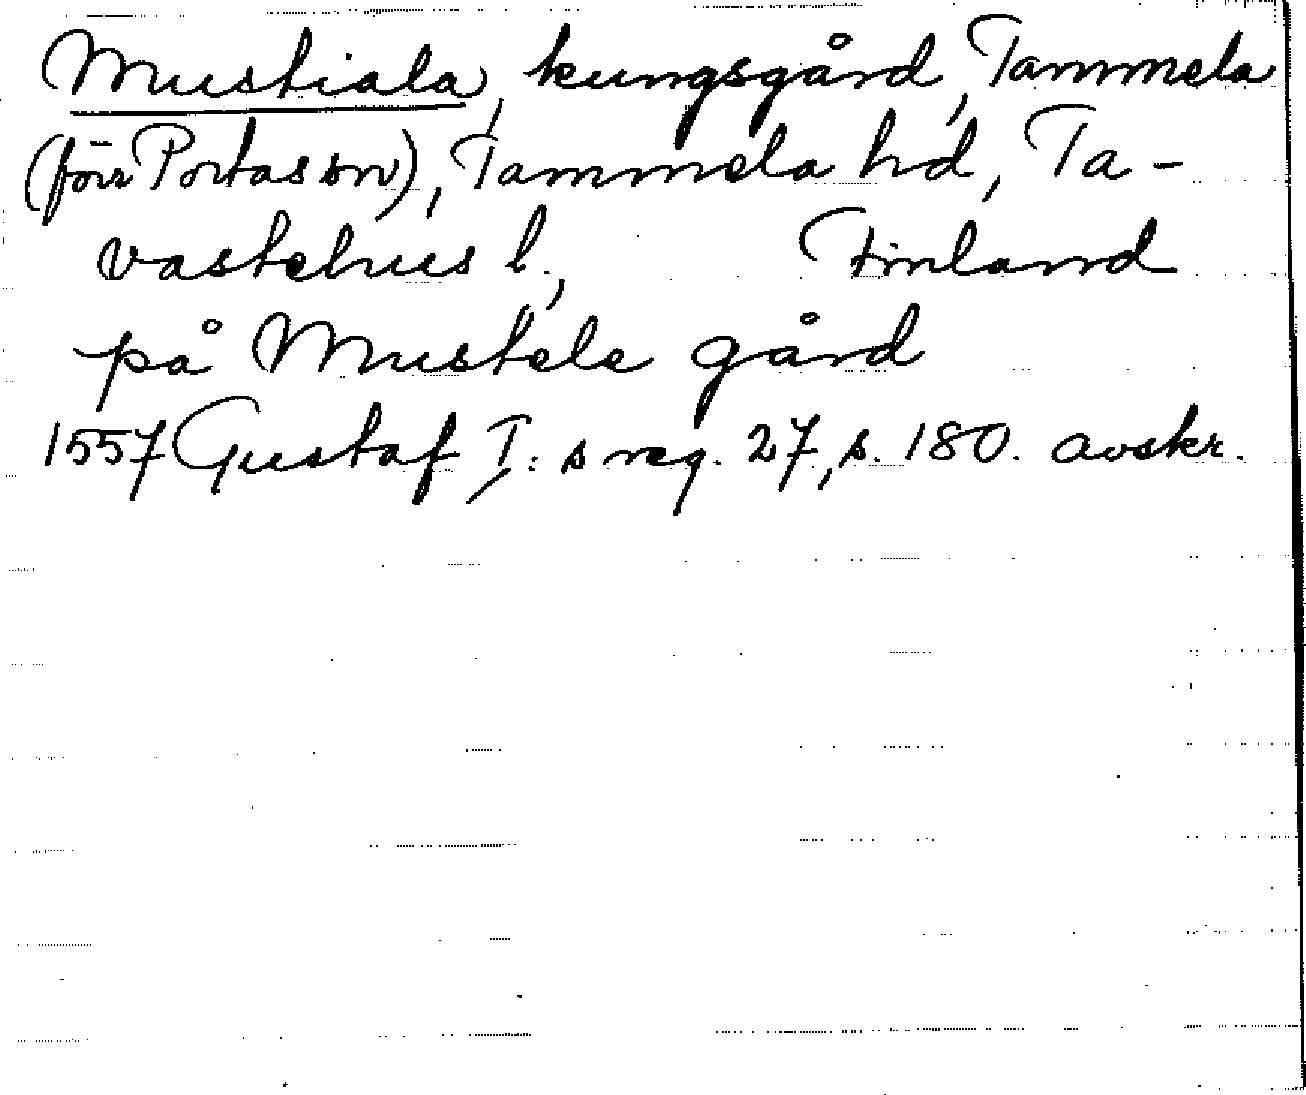 Mustiala, kungsgård, Tammela
(förr Portas sn), Tammela hd, Ta-
vastehus l., Finland
på Mustele gård
1557 Gustaf I:s reg. 27, s. 180. avskr.